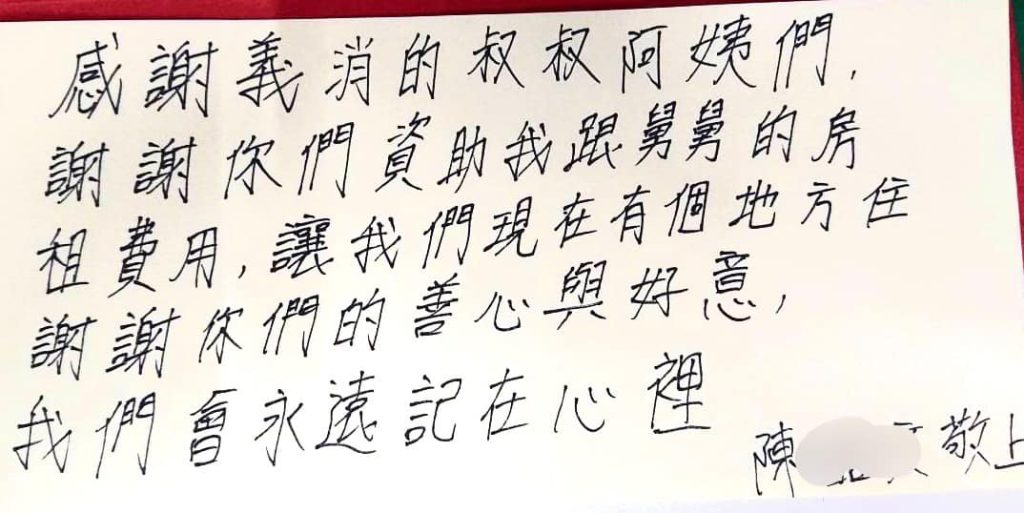 感謝義消的叔叔阿姨們,
謝謝你們資助我跟舅舅的房
租費用,讓我們現在有個地方住
謝謝你們的善心與好意,
我們會永遠記在心裡
陳 敬上